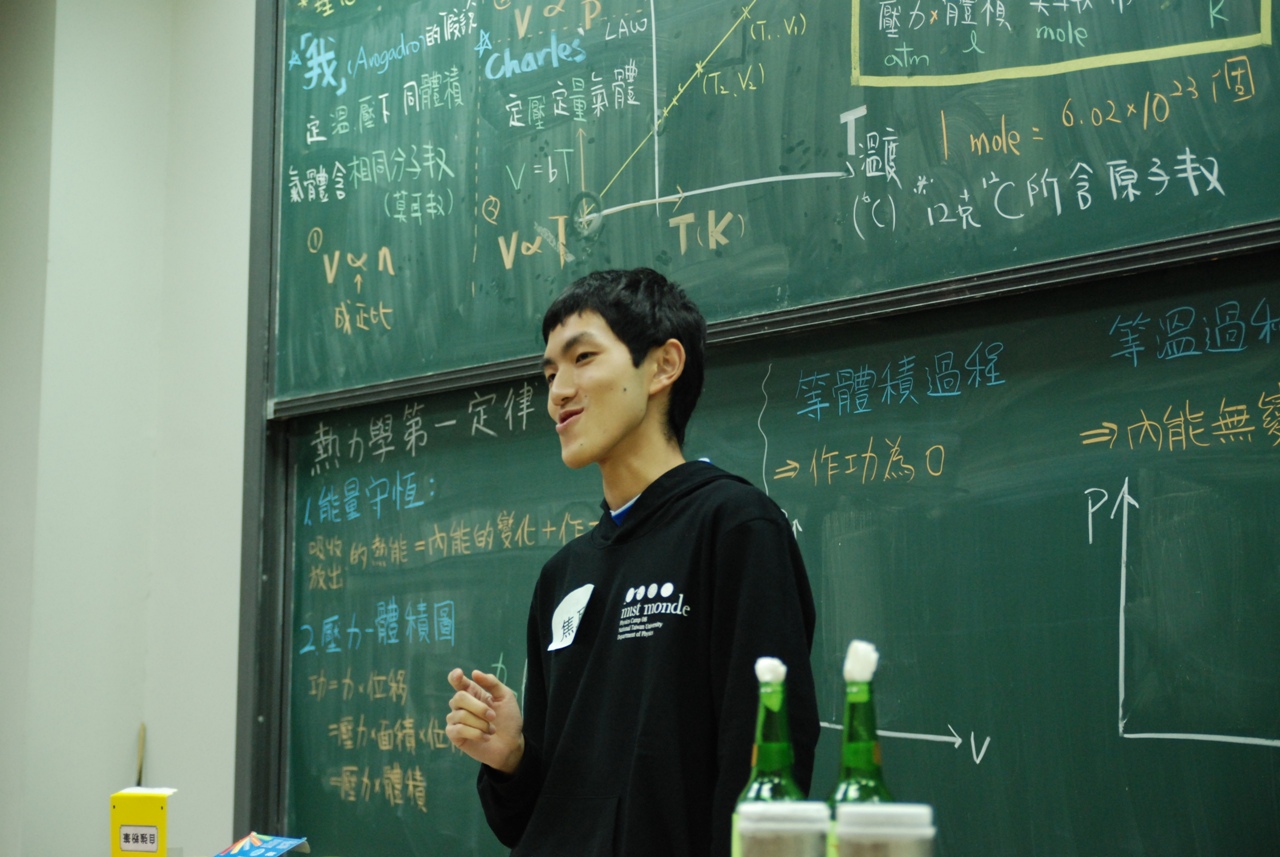 「我」(Avogadro)的假說
定溫.壓下同體積
氣體含相同分子數
(莫耳數)
① V ∝ n
↑
成正比
Charles' LAW
定壓定量氣體
V = bT
② V ∝ T
(T₁, V₁)
(T₂, V₂)
T(K)
T 溫度
(°C)
壓力×體積
atm ℓ mole K
1 mole = 6.02×10²³ 個
※12克 ¹²C所含原子數
熱力學第一定律
1. 能量守恆:
吸收
放出 的熱能=內能的變化+作
2. 壓力-體積圖
功=力×位移
=壓力×面積×位
=壓力×體積
等體積過程
⇒ 作功為0
V
等溫過
⇒ 內能無
P
mist monde
Physics Camp
National Taiwan University
Department of Physics
焦